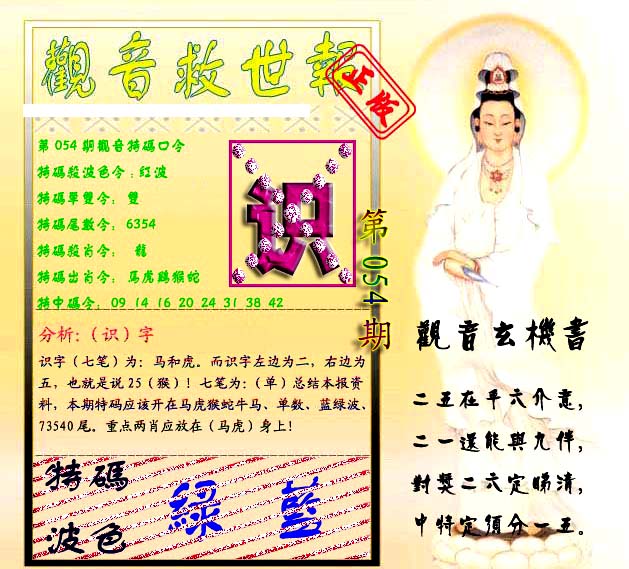 觀音救世報
正版
第054期觀音特碼口令
特碼殺波色令：紅波
特碼單雙令： 雙
特碼尾數令： 6354
特碼殺肖令： 龍
特碼出肖令： 馬虎鷄猴蛇
特中碼令： 09 14 16 20 24 31 38 42
识
第054期
分析：（识）字
识字（七笔）为：马和虎。而识字左边为二，右边为
五，也就是说25（猴）！七笔为：（单）总结本报资
料，本期特码应该开在马虎猴蛇牛马、单数、蓝绿波、
73540尾。重点两肖应放在（马虎）身上！
特碼
波色
綠 藍
觀音玄機書
二五在平六介意，
二一還能與九伴，
對獎二六定睇清，
中特定須分一五。